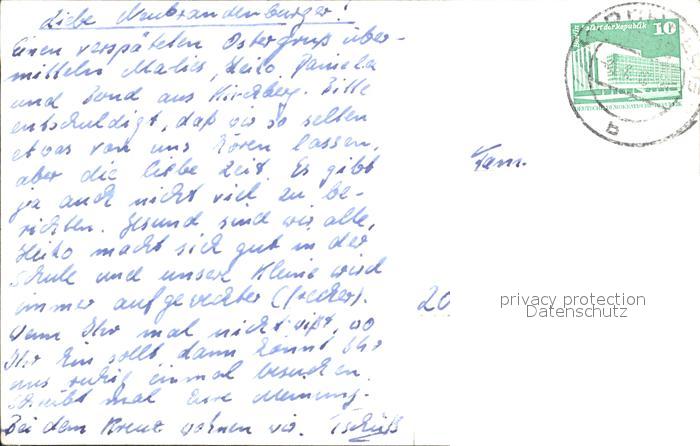 Liebe Neubrandenburger!
Einen verspäteten Ostergruß über-
mitteln Marlies, Heiko, Daniela
und Bernd aus Kirchberg. Bitte
entschuldigt, daß wir so selten
etwas von uns hören lassen,
aber die liebe Zeit. Es gibt
ja auch nicht viel zu be-
richten. Gesund sind wir alle,
Heiko macht sich gut in der
Schule und unsere Kleine wird
immer aufgeweckter (frecher).
Wenn Ihr mal nicht wißt, wo
Ihr hin sollt dann könnt Ihr
uns ruhig einmal besuchen.
Schreibt mal Eure Meinung.
Bei dem Kreuz wohnen wir. Tschüß
10
Fam.
20
privacy protection
Datenschutz